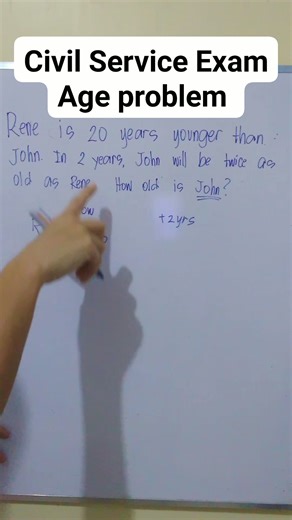 Civil Service Exam
Age problem
Rene is 20 years younger than
John. In 2 years, John will be twice as
old as Rene. How old is John?
+2yrs
R